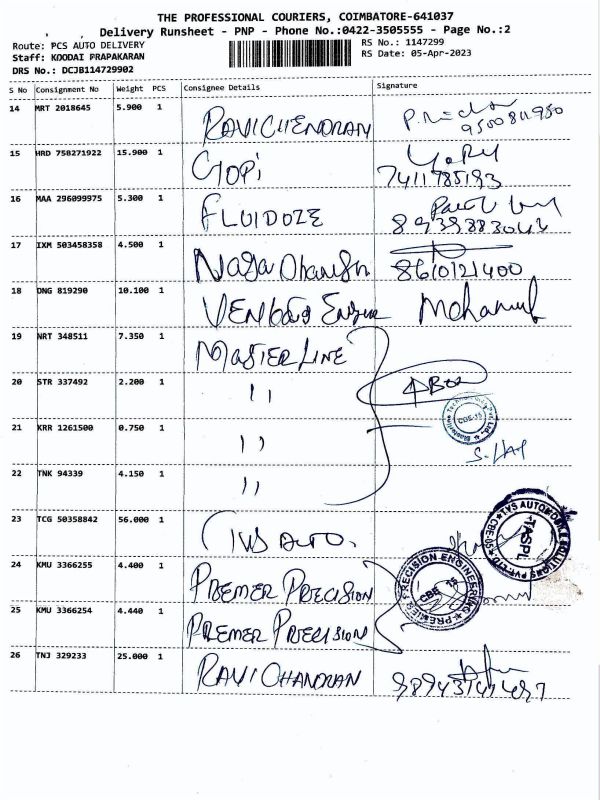 THE PROFESSIONAL COURIERS, COIMBATORE-641037
Delivery Runsheet - PNP - Phone No.:0422-3505555 - Page No.:2
Route: PCS AUTO DELIVERY
RS No.: 1147299
Staff: KOODAI PRAPAKARAN
RS Date: 05-Apr-2023
DRS No.: DCJB114729902
S No Consignment No Weight PCS Consignee Details Signature
14 MRT 2018645 5.900 1 RAVICHENDRAN
15 HRD 758271922 15.900 1 GOPi
7411785193
16 MAA 296099975 5.300 1 FLUIDOZE
17 IXM 503458358 4.500 1 Naga Dhanush
8610121400
18 DNG 819290 10.100 1 Mohanul
19 NRT 348511 7.350 1 MASTER LINE
20 STR 337492 2.200 1 ''
21 KRR 1261500 0.750 1 ''
CBE-35
22 TNK 94339 4.150 1 ''
23 TCG 50358842 56.000 1 TVS AUTO.
TVS AUTOMOBILE SOLUTIONS PVT LTD CBE-05
TASPL
24 KMU 3366255 4.400 1 PREMER PRECISION
PREMIER PRECISION ENGINEERING
25 KMU 3366254 4.440 1 PREMER PRECISION
26 TNJ 329233 25.000 1 RAVICHANDRAN